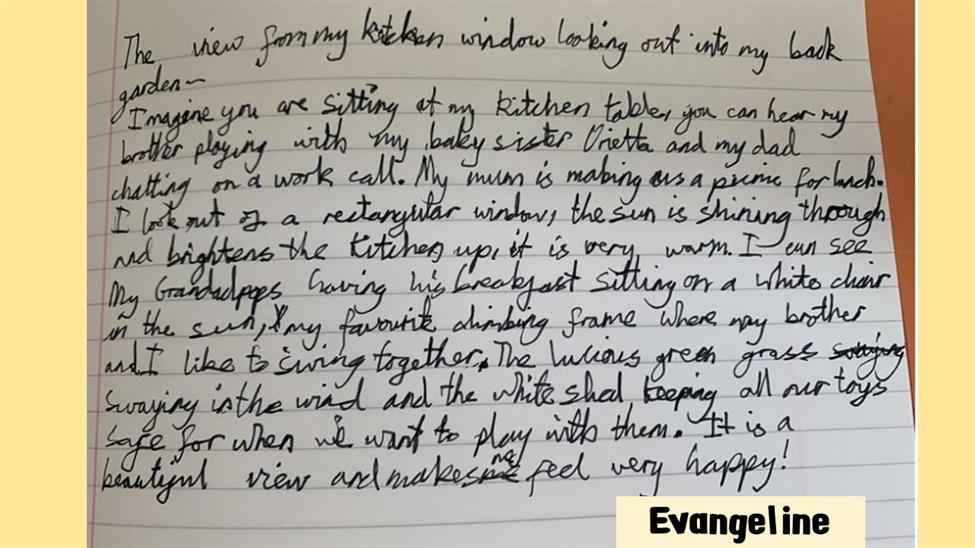 The view from my kitchen window looking out into my back
garden~
Imagine you are sitting at my kitchen table, you can hear my
brother playing with my baby sister Orietta and my dad
chatting on a work call. My mum is making us a picnic for lunch.
I look out of a rectangular window, the sun is shining through
and brightens the kitchen up, it is very warm. I can see
My Grandadpops having his breakfast sitting on a white chair
in the sun, my favourite climbing frame where my brother
and I like to swing together. The lucious green grass swaying
swaying in the wind and the white shed keeping all our toys
safe for when we want to play with them. It is a
beautiful view and makes me feel very happy!
Evangeline